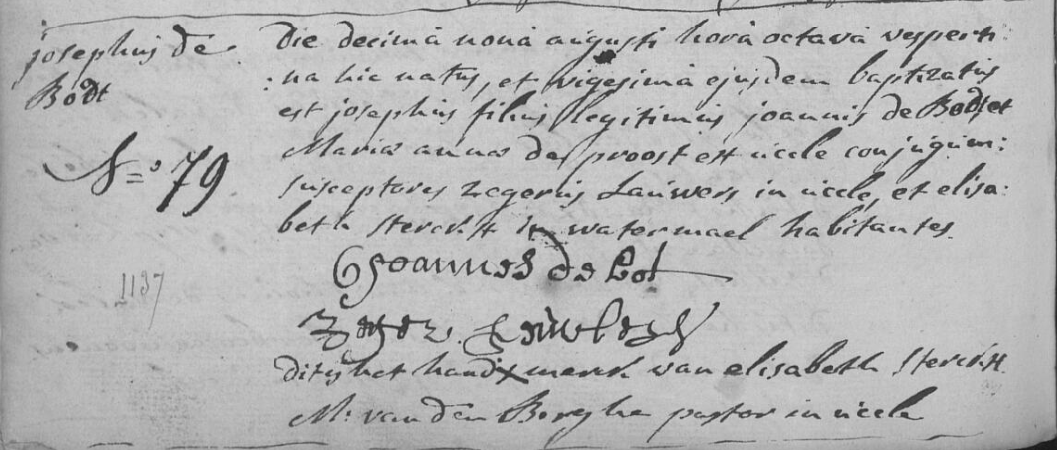 josephus de
Bodt
N=º 79
1137
Die decimâ nonâ augusti horâ octavâ vesperti:
:na hic natus, et vigesimâ ejusdem baptizatus
est josephus filius legitimus joannis de Bodt et
Mariæ annæ de proost ex uccle conjugum:
susceptores zegerus Lauwers in uccle, et elisa:
beth sterckx in watermael habitantes.
Joannes de bot
Zeger
dit is het hand x merck van elisabeth sterckx
M. van den Borghe pastor in uccle